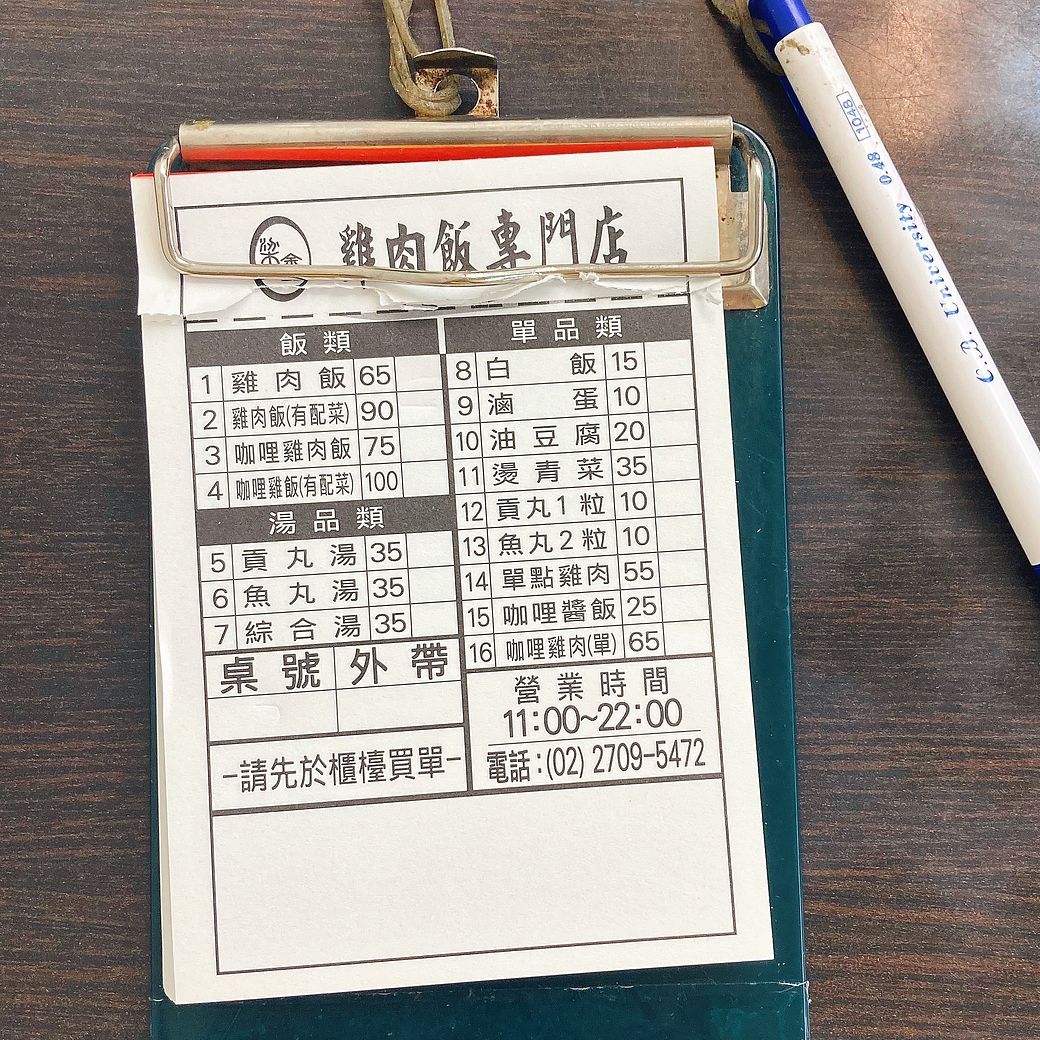 雞肉飯專門店
飯類
1 雞肉飯 65
2 雞肉飯(有配菜) 90
3 咖哩雞肉飯 75
4 咖哩雞飯(有配菜) 100
湯品類
5 貢丸湯 35
6 魚丸湯 35
7 綜合湯 35
桌號 外帶
-請先於櫃檯買單-
單品類
8 白飯 15
9 滷蛋 10
10 油豆腐 20
11 燙青菜 35
12 貢丸1粒 10
13 魚丸2粒 10
14 單點雞肉 55
15 咖哩醬飯 25
16 咖哩雞肉(單) 65
營業時間
11:00~22:00
電話:(02) 2709-5472
C.B. University 0.48 1048